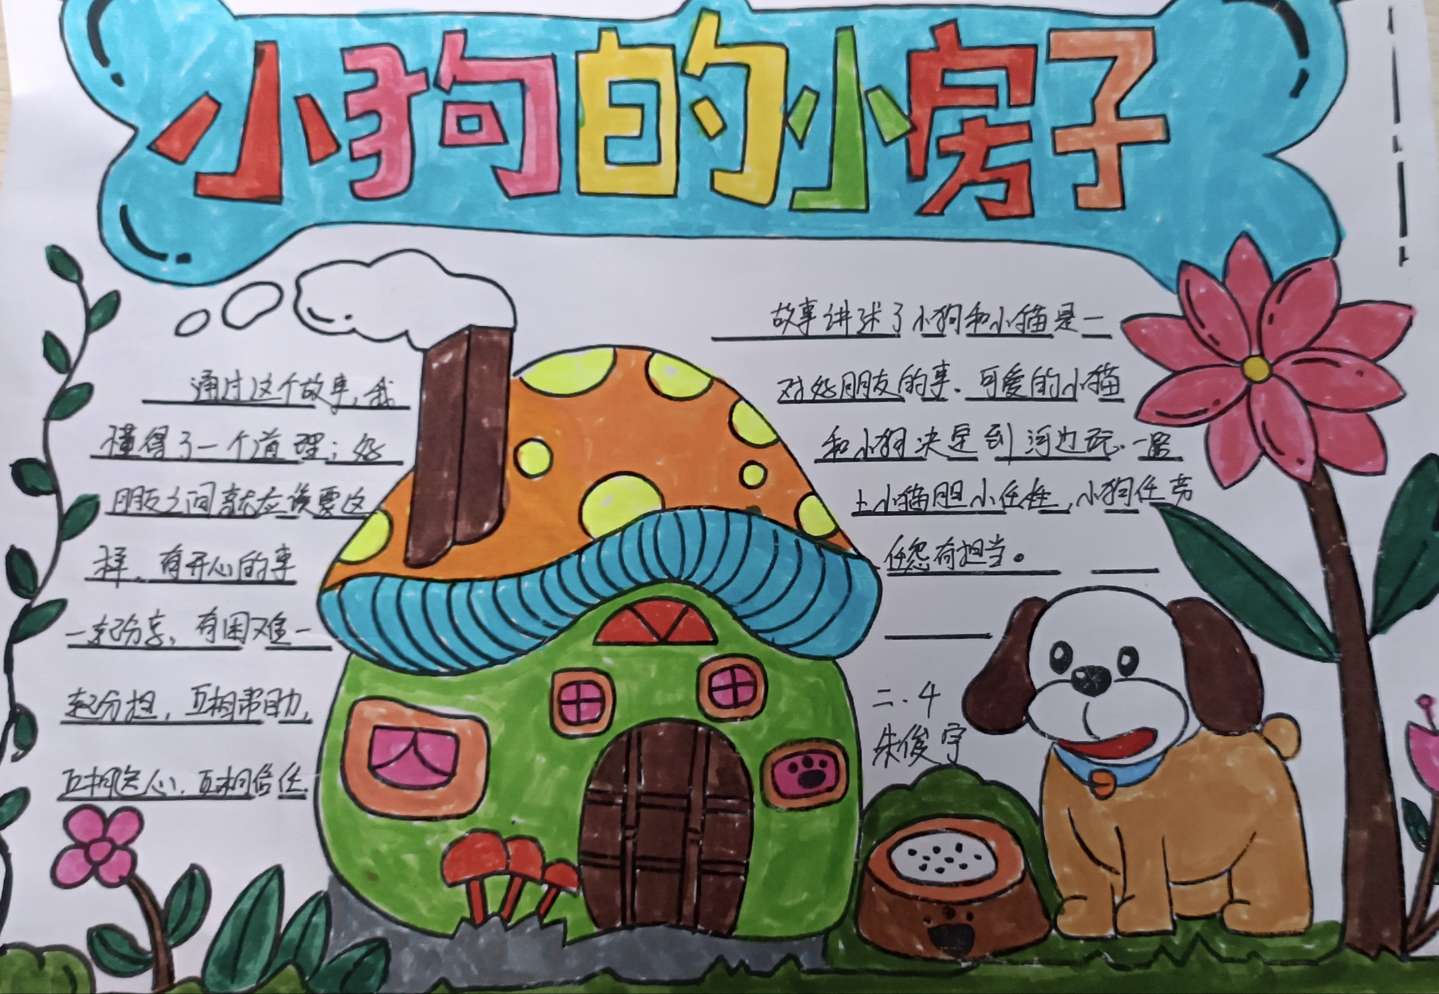 小狗的小房子
通过这个故事,我
懂得了一个道理:好
朋友之间就应该要这
样、有开心的事
一起分享,有困难一
起分担,互相帮助,
互相关心、互相信任
故事讲述了小狗和小猫是一
对好朋友的事、可爱的小猫
和小狗决定到河边玩.一路
上小猫胆小任性,小狗任劳
任怨有担当。
二.4
朱俊宇